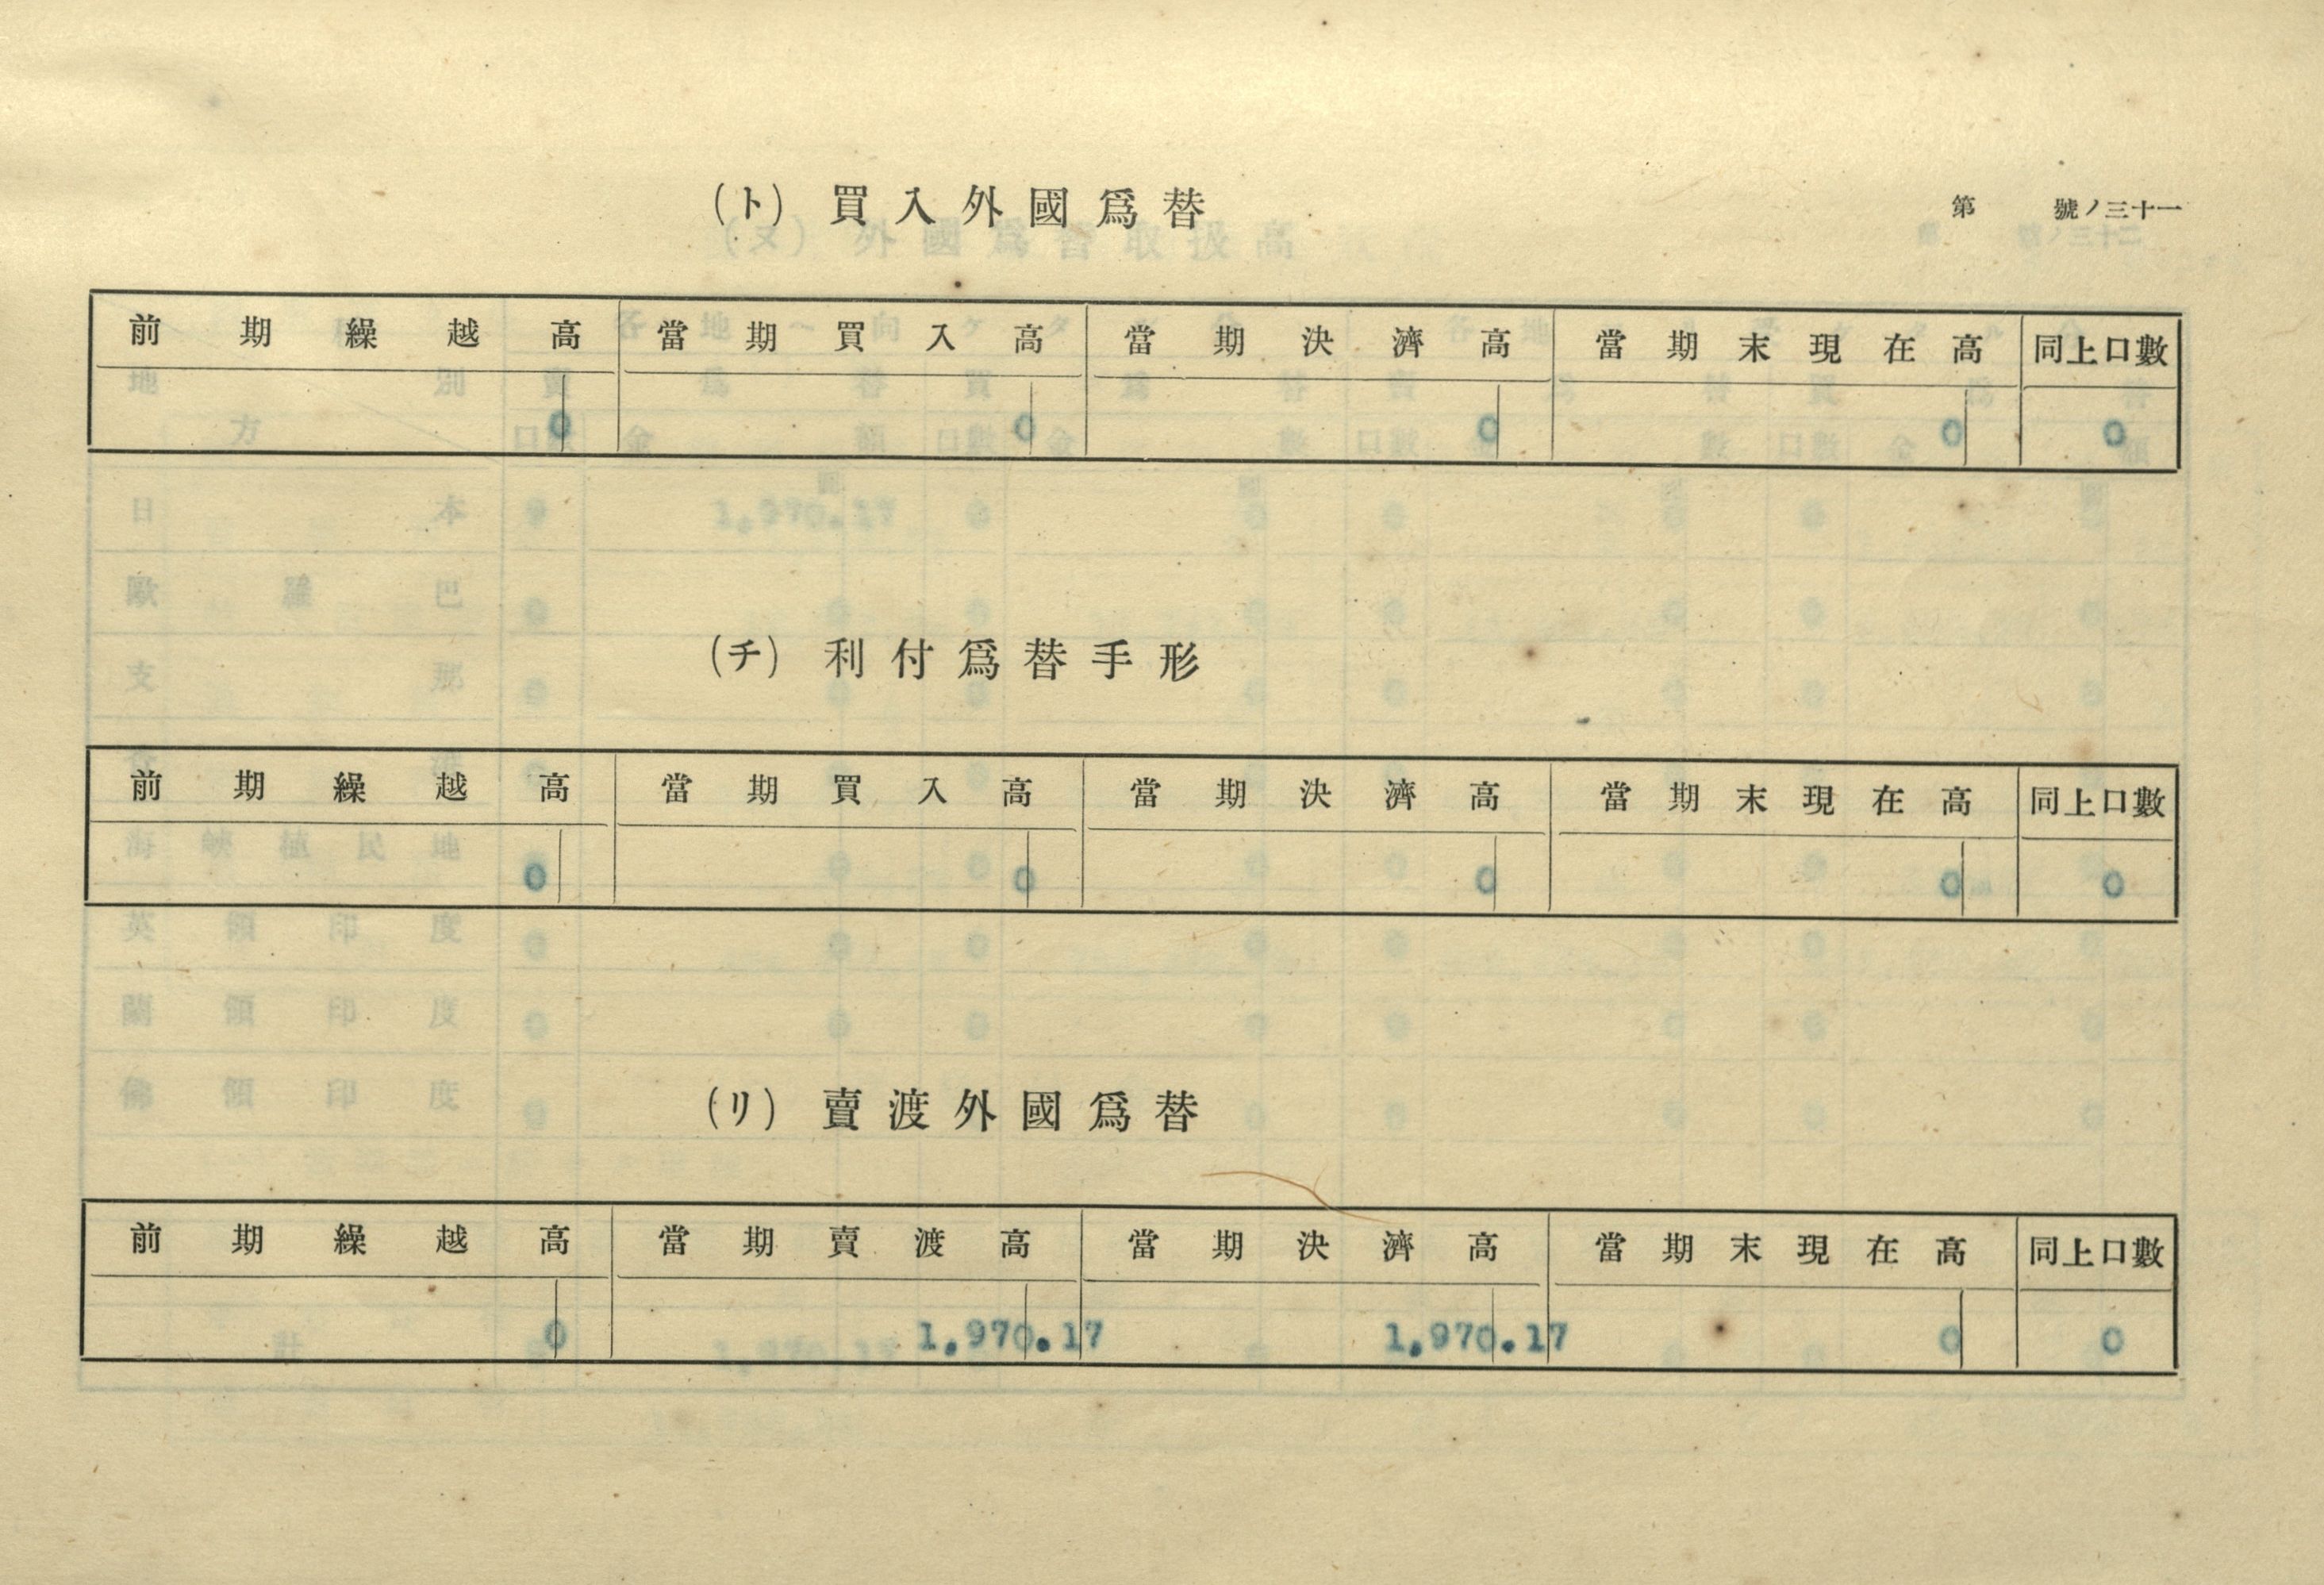 第 號ノ三十一
(ト) 買入外國爲替
前期繰越高 當期買入高 當期決濟高 當期末現在高 同上口數
0 0 0 0 0
(チ) 利付爲替手形
前期繰越高 當期買入高 當期決濟高 當期末現在高 同上口數
0 0 0 0 0
(リ) 賣渡外國爲替
前期繰越高 當期賣渡高 當期決濟高 當期末現在高 同上口數
0 1,970.17 1,970.17 0 0